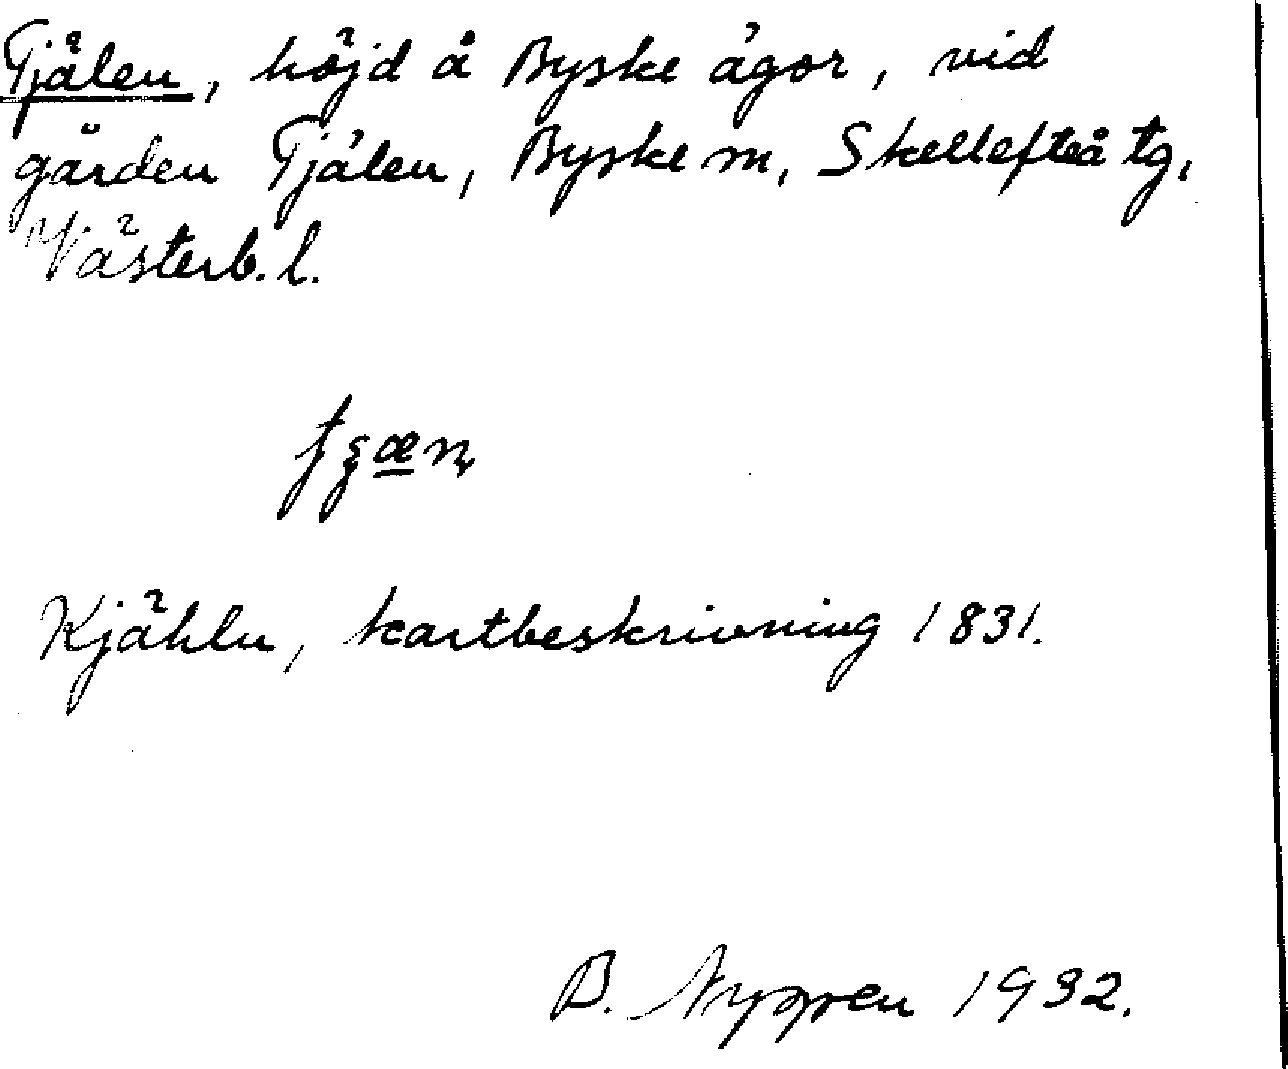 Tjälen, höjd å Byske ägor, vid
gården Tjälen, Byske sn, Skellefteå tg,
Västerb. l.
Kjähln, kartbeskrivning 1831.
B. Nygren 1932.